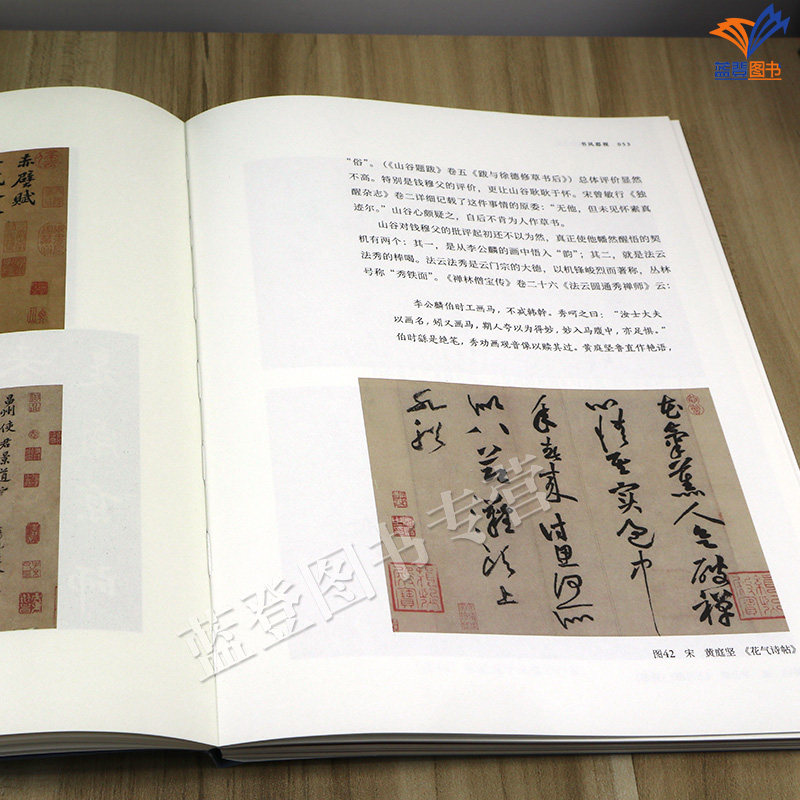 蓝登图书
赤壁赋
昌州使君景道宁
书风鉴赏 053
“俗”。(《山谷题跋》卷五《跋与徐德修草书后》)总体评价显然
不高。特别是钱穆父的评价,更让山谷耿耿于怀。宋曾敏行《独
醒杂志》卷二详细记载了这件事情的原委:“无他,但未见怀素真
迹尔。”山谷心颇疑之,自后不肯为人作草书。
山谷对钱穆父的批评起初还不以为然,真正使他幡然醒悟的契
机有两个:其一,是从李公麟的画中悟入“韵”;其二,就是法云
法秀的棒喝。法云法秀是云门宗的大德,以机锋峻烈而著称,丛林
号称“秀铁面”。《禅林僧宝传》卷二十六《法云圆通秀禅师》云:
李公麟伯时工画马,不减韩幹。秀呵之曰:“汝士大夫
以画名,矧又画马,期人夸以为得妙,妙入马腹中,亦足惧。”
伯时繇是绝笔,秀劝画观音像以赎其过。黄庭坚鲁直作艳语,
花氣薰人欲破禪
心情其實過中
年春來詩思何所
似八節灘頭上
水船
图42 宋 黄庭坚 《花气诗帖》
蓝登图书专营